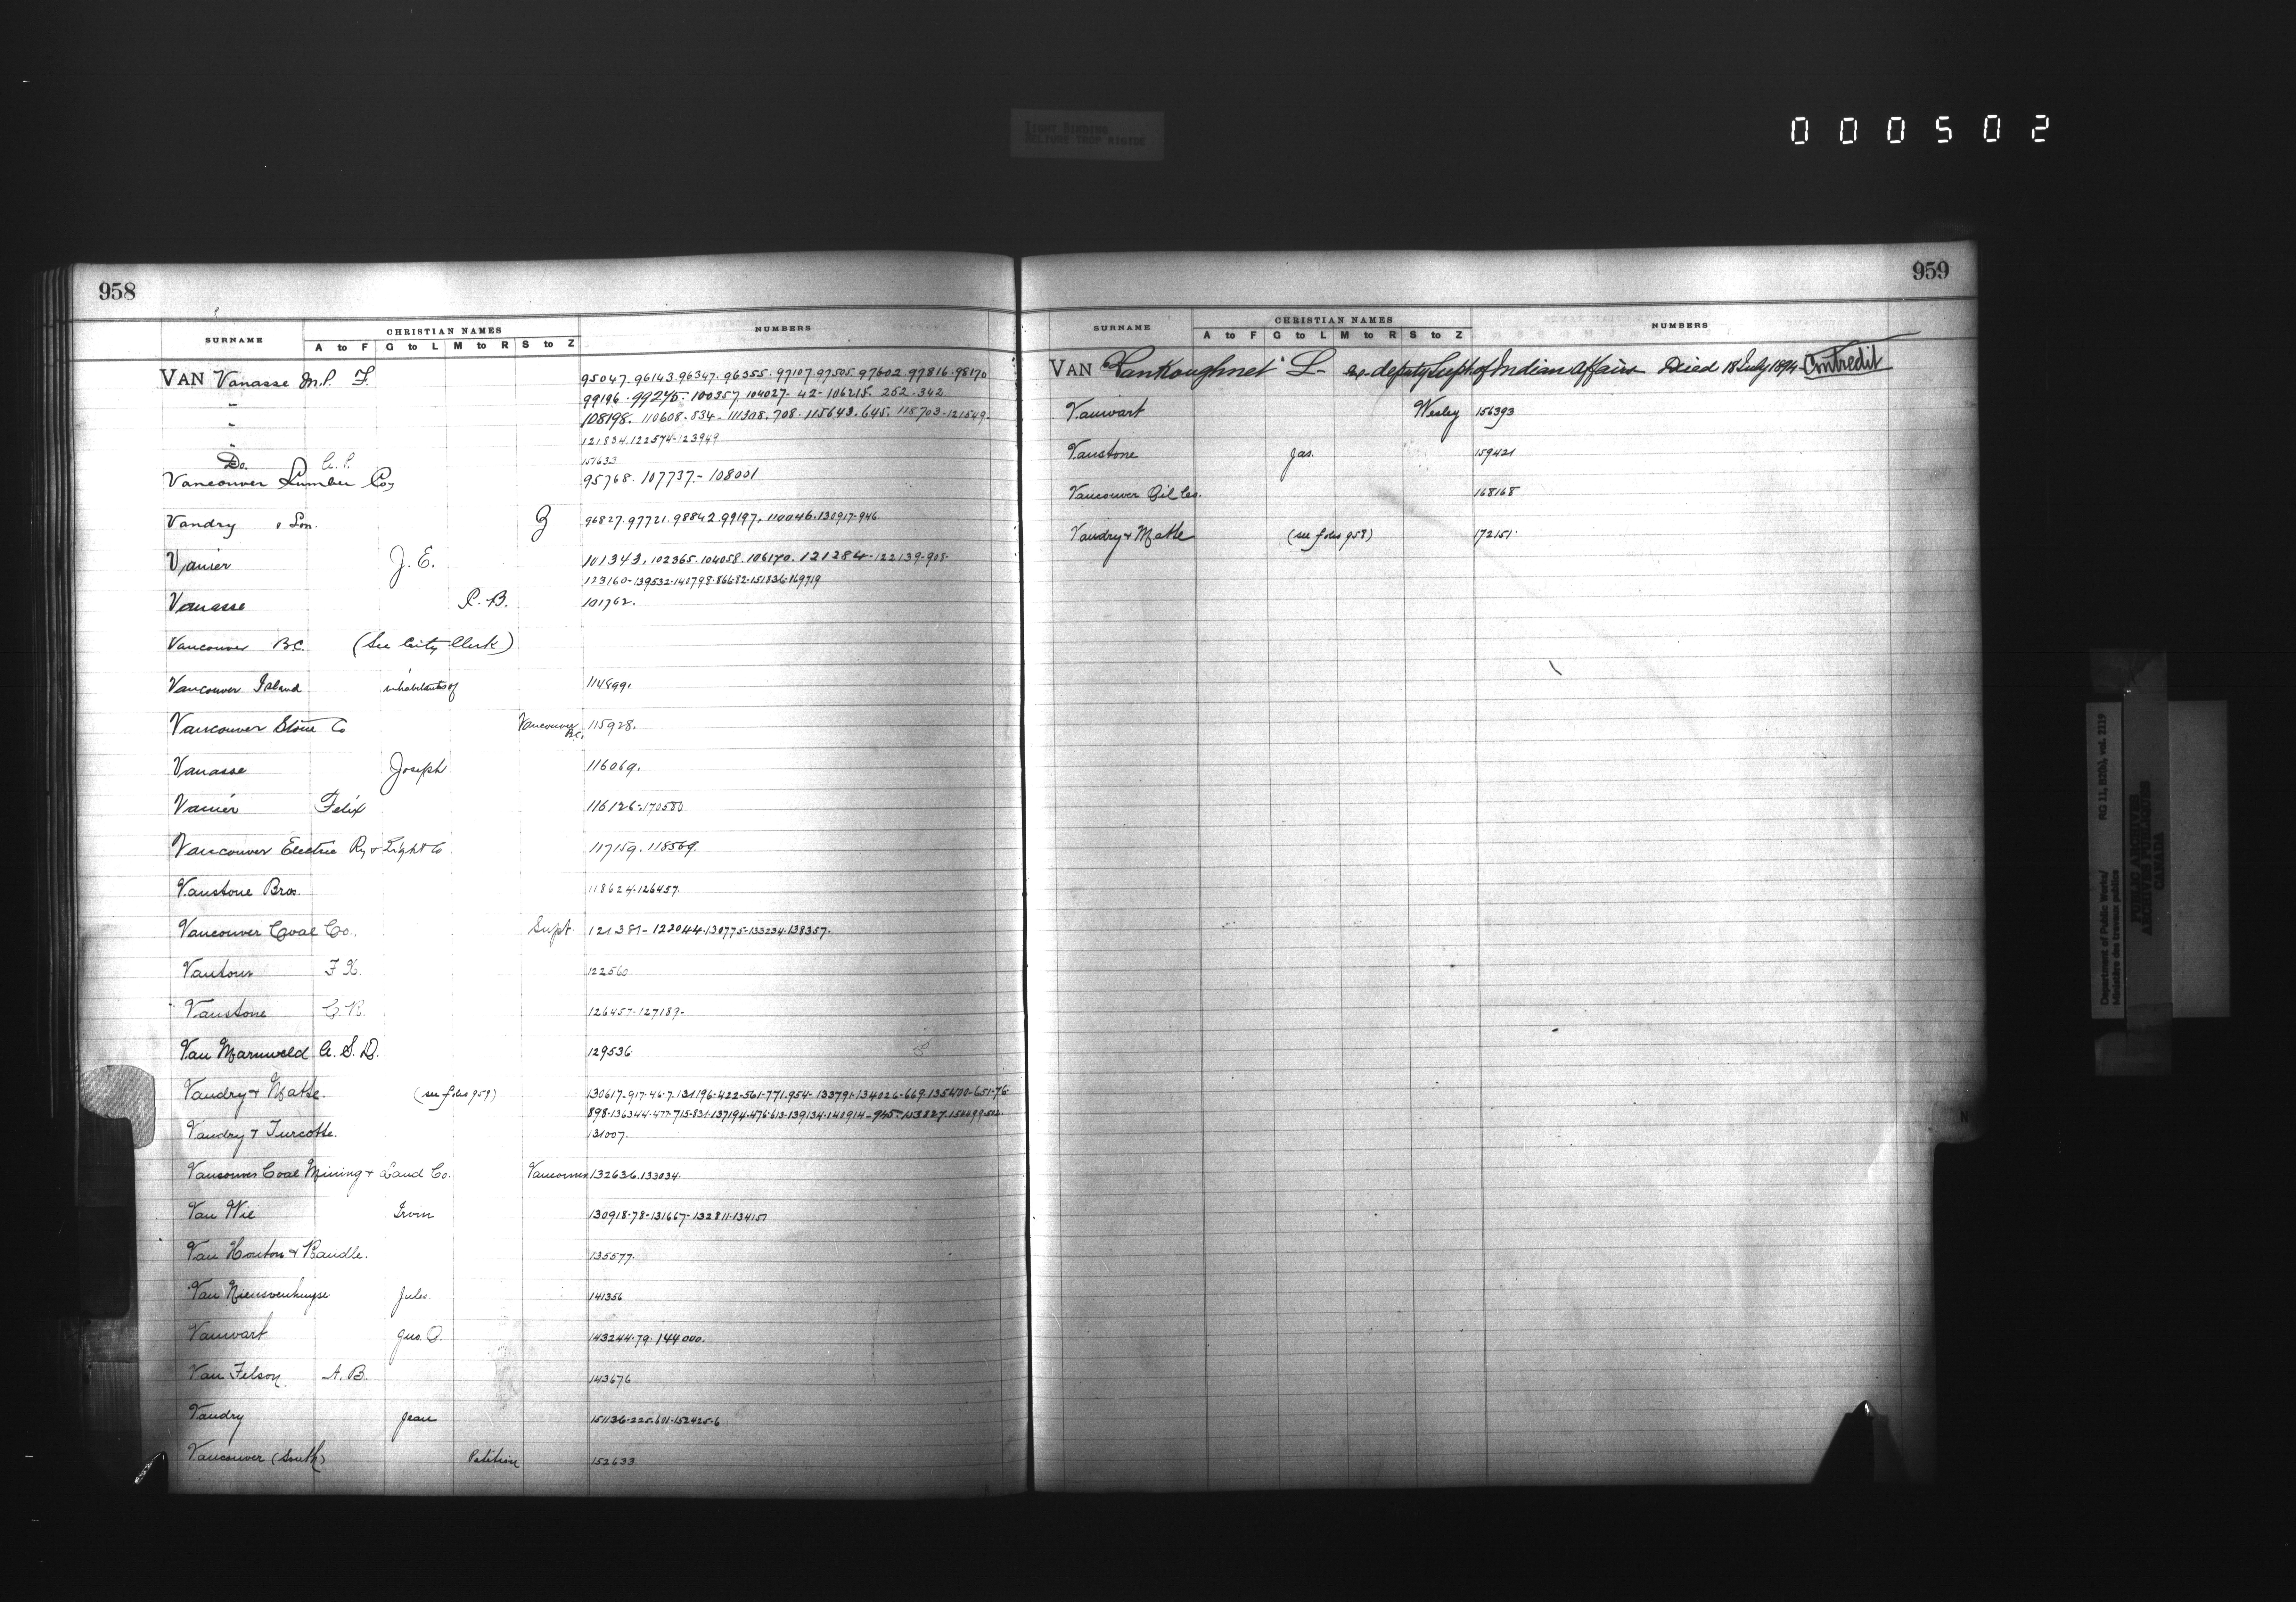 000502
TIGHT BINDING
RELIURE TROP RIGIDE
958
SURNAME CHRISTIAN NAMES NUMBERS
A to F G to L M to R S to Z
VAN Vanasse M.P. F. 95047. 96143. 96347. 96355. 97107. 97505. 97602. 97816. 98170
" 99196. 99245. 100357. 104027. 42 - 106215. 252. 342
" 108198. 110608. 834. 111308. 708. 115643. 645. 118703 - 121549
" 121834. 122574 - 123949
Do. 151633
Vancouver Lumber Coy 95768. 107737. - 108001
Vandry & Son. Z 96827. 97721. 98842. 99197. 110046. 130917 - 946.
Vanier J. E. 101343. 102365. 104058. 106170. 121284 - 122139 - 908 -
123160 - 139532 - 140798 - 86682 - 151836 - 169719
Vanasse P. B. 101762.
Vancouver B.C. (See City Clerk)
Vancouver Island inhabitants of 114899.
Vancouver Stone Co Vancouver B.C. 115928.
Vanasse Joseph 116069.
Vanier Felix 116126 - 170580
Vancouver Electric Ry & Light Co 117159. 118569.
Vanstone Bros. 118624 - 126457
Vancouver Coal Co. Supt. 121381 - 122044 - 130775 - 133234 - 138357.
Vantour F X. 122560
Vanstone 126457 - 127189 -
Van A. S. D. 129536
Vandry & Matte. (see folio 959) 130617 - 917 - 46 - 7. 131196 - 422 - 561 - 771. 954 - 133791 - 134026 - 669. 135400 - 651 - 76
898 - 136344 - 477 - 715 - 831 - 137194 - 476 - 613 - 139134 - 140914
Vandry & Turcotte. 131007.
Vancouver Coal Mining & Land Co. Vancouver 132636. 133034.
Van Wie Irvin 130918 - 78 - 131667 - 132811 - 134151
Van Houton & Randle. 135577.
Van Jules 141356
Vanwart Gus. O. 143244 - 79. 144000.
Van Felson A. B. 143676
Vandry Jean 151136 - 225 - 601 - 152425 - 6
Vancouver (South) Petition 152633
959
SURNAME CHRISTIAN NAMES NUMBERS
A to F G to L M to R S to Z
VAN VanKoughnet L - ex-deputy Supt of Indian Affairs Died 18 July 1894
Vanwart Wesley 156393
Vanstone Jas. 159421
Vancouver Oil Co. 168168
Vandry & Matte (see folio 958) 172151.
N
RG 11, B2(b), vol. 2119
Department of Public Works/
Ministère des travaux publics
PUBLIC ARCHIVES
ARCHIVES PUBLIQUES
CANADA